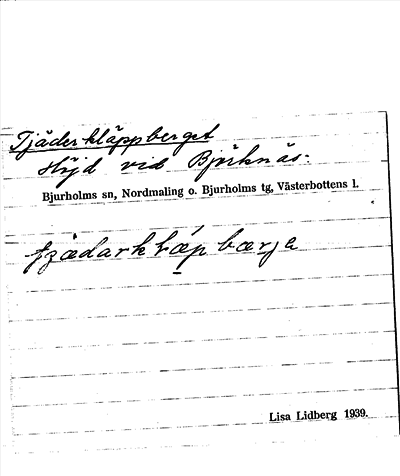 Tjäderkläppberget
Höjd vid Björknäs.
Bjurholms sn, Nordmaling o. Bjurholms tg, Västerbottens l.
Lisa Lidberg 1939.